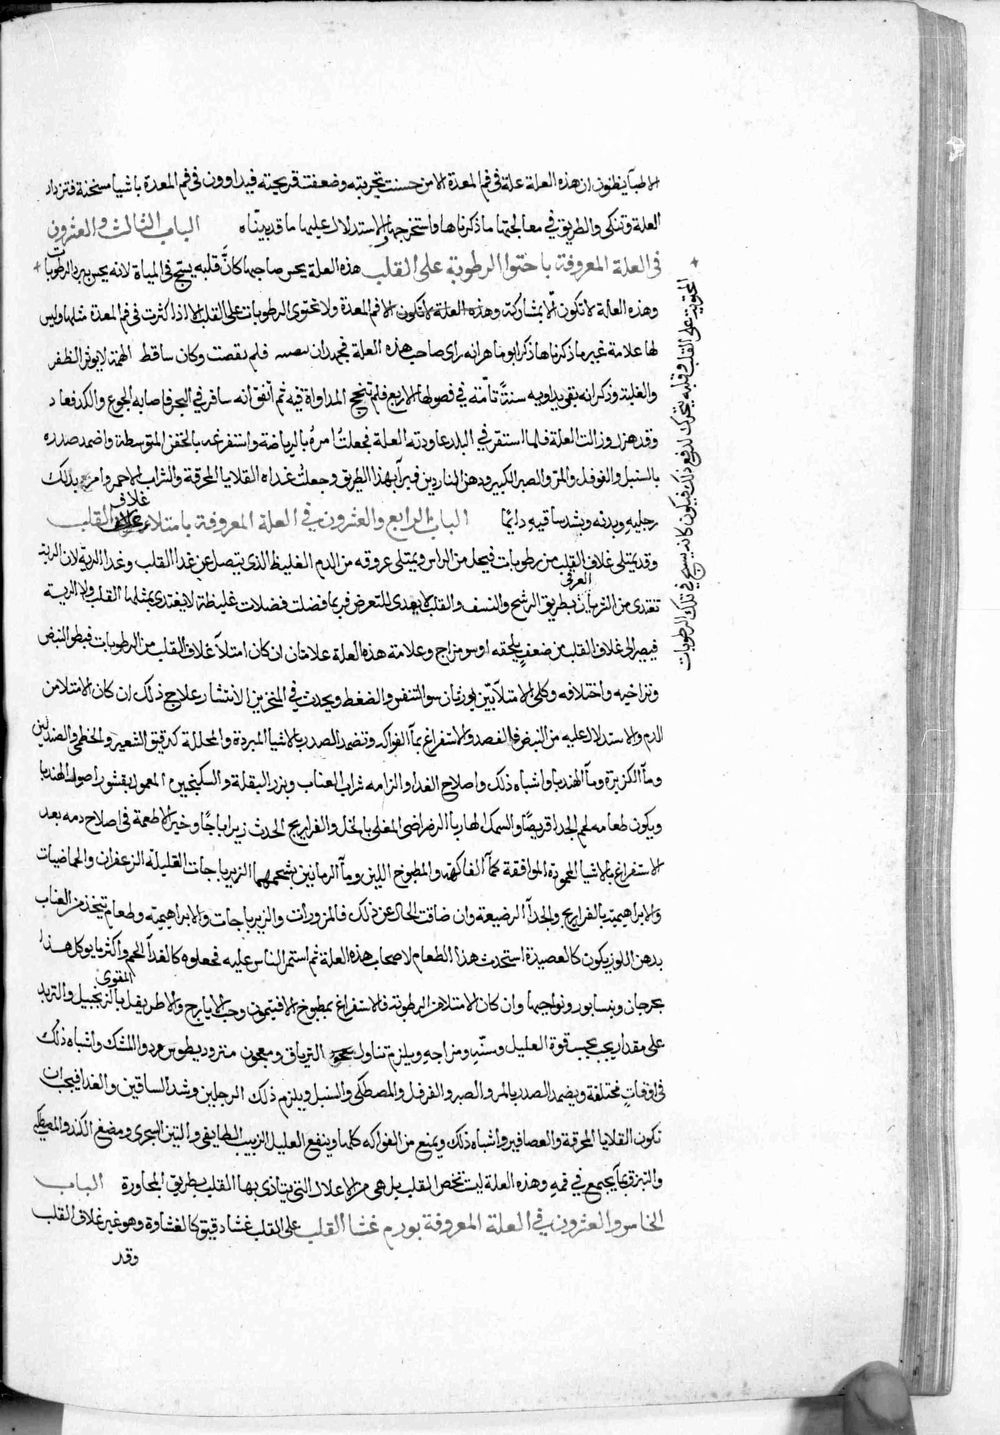 الاطبآ يظنون ان هذه العلة علة فى فم المعدة الا من حسنت تجربته وضعفت قريحته فيداوون فى فم المعدة باشيا مسخنة فتزداد
العلة وتنكى والطريق فى معالجتها ما ذكرناها واستخرجها والاستدلال عليها ما قد بيناه الباب الثالث والعشرون
فى العلة المعروفة باحتوا الرطوبة على القلب هذه العلة يحس صاحبها كانّ قلبه يسبح فى المياة لانه يحس ببرد الرطوبات
وهذه العلة لا تكون الّا بمشاركة وهذه العلة لا تكون الا فم المعدة ولا تحتوى الرطوبات على القلب الا اذا كثرت فى فم المعدة مثلها وليس
لها علامة غير ما ذكرناها ذكر ابو ماهر انه راى صاحب هذه العلة فجهد ان فلم نقصت وكان ساقط الهمة لا يوثر الظفر
والغلبة وذكر انه بقى يداويه سنةً تامّة في فصولها الاربع فلم تنجح المداواة فيه ثم اتفق انه سافر في البحر فاصابه الجوع والكد فعاد
وقد هزل وزالت العلة فلما استقر في البلد عاودته العلة فجعلتُ امرهُ بالرياضة واستفرغه بالحقن المتوسطة واضمد صدره
بالسنبل والفوفل والمرّ والصبر الكبير ودهن الناردين فبرآ بهذا الطريق وجعلتُ غداه القلايا المحرقة والشراب الاحمر وامر بدلك
رجليهِ وبدنه وبشد ساقيهِ دائمًا الباب الرابع والعشرون فى العلة المعروفة بامتلاء غلاف القلب
وقد يمتلى غلاف القلب من رطوبات فيحل من الراس ويمتلى عروقه من الدم الغليظ الذى يتصل عن غدا القلب وغدا الرية لان الرية
تغتدى من الشريان العرقى بطريق الرشح والنسف والقلب لا يغدى للتعرض فربما فضلت فضلات غليظة لا يغتدى بمثلها القلب ولا الرية
فيصير الى غلاف القلب من ضعفٍ يلحقه او سو مزاج وعلامة هذه العلة علامتان ان كان امتلآ غلاف القلب من الرطوبات فبطو النبض
وتراخيه واختلافه وكلى الامتلآئيّن يورثان سو التنفس والضغط ويحدث في المنخرين الانتشار علاج ذلك ان كان الامتلا من
الدم والاستدلال عليه من النبض فالفصد والاستفراغ بمآ الفواكه وتضمد الصدر بالاشيا المبردة والمحللة كدقيق الشعير والخطمى والصندلين
ومآ الكزبرة ومآ الهندبا واشباه ذلك واصلاح الغدا والزامه شراب العناب وبزر البقلة والسكنجبين المعمول بقشور اصول الهندبا
ويكون طعامه لحم الجدا قريصًا والسمك الهاربا الرضراضى المغلى بالخل والفراريج الحدث زيرباجًا وخير الاطعمة فى اصلاح دمه بعد
الاستفراغ بالاشيا المحمودة الموافقة كمآ الفاكهة والمطبوخ اللين ومآ الرمانين بشحمهما الزيرباجات القليلة الزعفران والحماضيات
والابراهيمية بالفراريج والجدآ الرضيعة وان ضاقت الحال عن ذلك فالمزورات والزيرباجات والابراهيمية وطعام تيخذ من العناب
بدهن اللوز يكون كالعصيدة استحدث هذا الطعام لاصحاب هذه العلة ثم استمر الناس عليه فجعلوه كالغدآ لهم واكثر ما يوكل هذا
بجرجان ونيسابور ونواحيها وان كان الامتلا من الرطوبة فالاستفراغ بمطبوخ الافتيمون وحب الايارج والاطريفل المقوى بالزنجبيل والتربد
على مقدار يجب بحسب قوة العليل وسنّهِ ومزاجهِ ويلزم تناول الترياق ومعجون مثروديطوس ودوا المسك واشباه ذلك
فى اوقاتٍ مختلفة ويضمد الصدر بالمر والصبر والقرفل والمصطكى والسنبل ويلزم ذلك الرجلين وشد الساقين والغدا فيجب ان
تكون القلايا المحرقة والعصافير واشباه ذلك ويمنع من الفواكه كلها وينفع العليل الزبيب الطايفى والتين السجزى ومضغ الكندر والمصطكى
والتبزق بما يجتمع في فمهِ وهذه العلة ليت تخص القلب بل هى من الاعلال التى يتاذى بها القلب بطريق المجاورة الباب
الخامس والعشرون فى العلة المعروفة بورم غشا القلب على القلب غشا دقيق كالغشاوة وهو غير غلاف القلب
وقد
المحتوية على القلب وقلبه يتحرك لدفع ذلك فيكون كانه يسبح في تلك الرطوبات